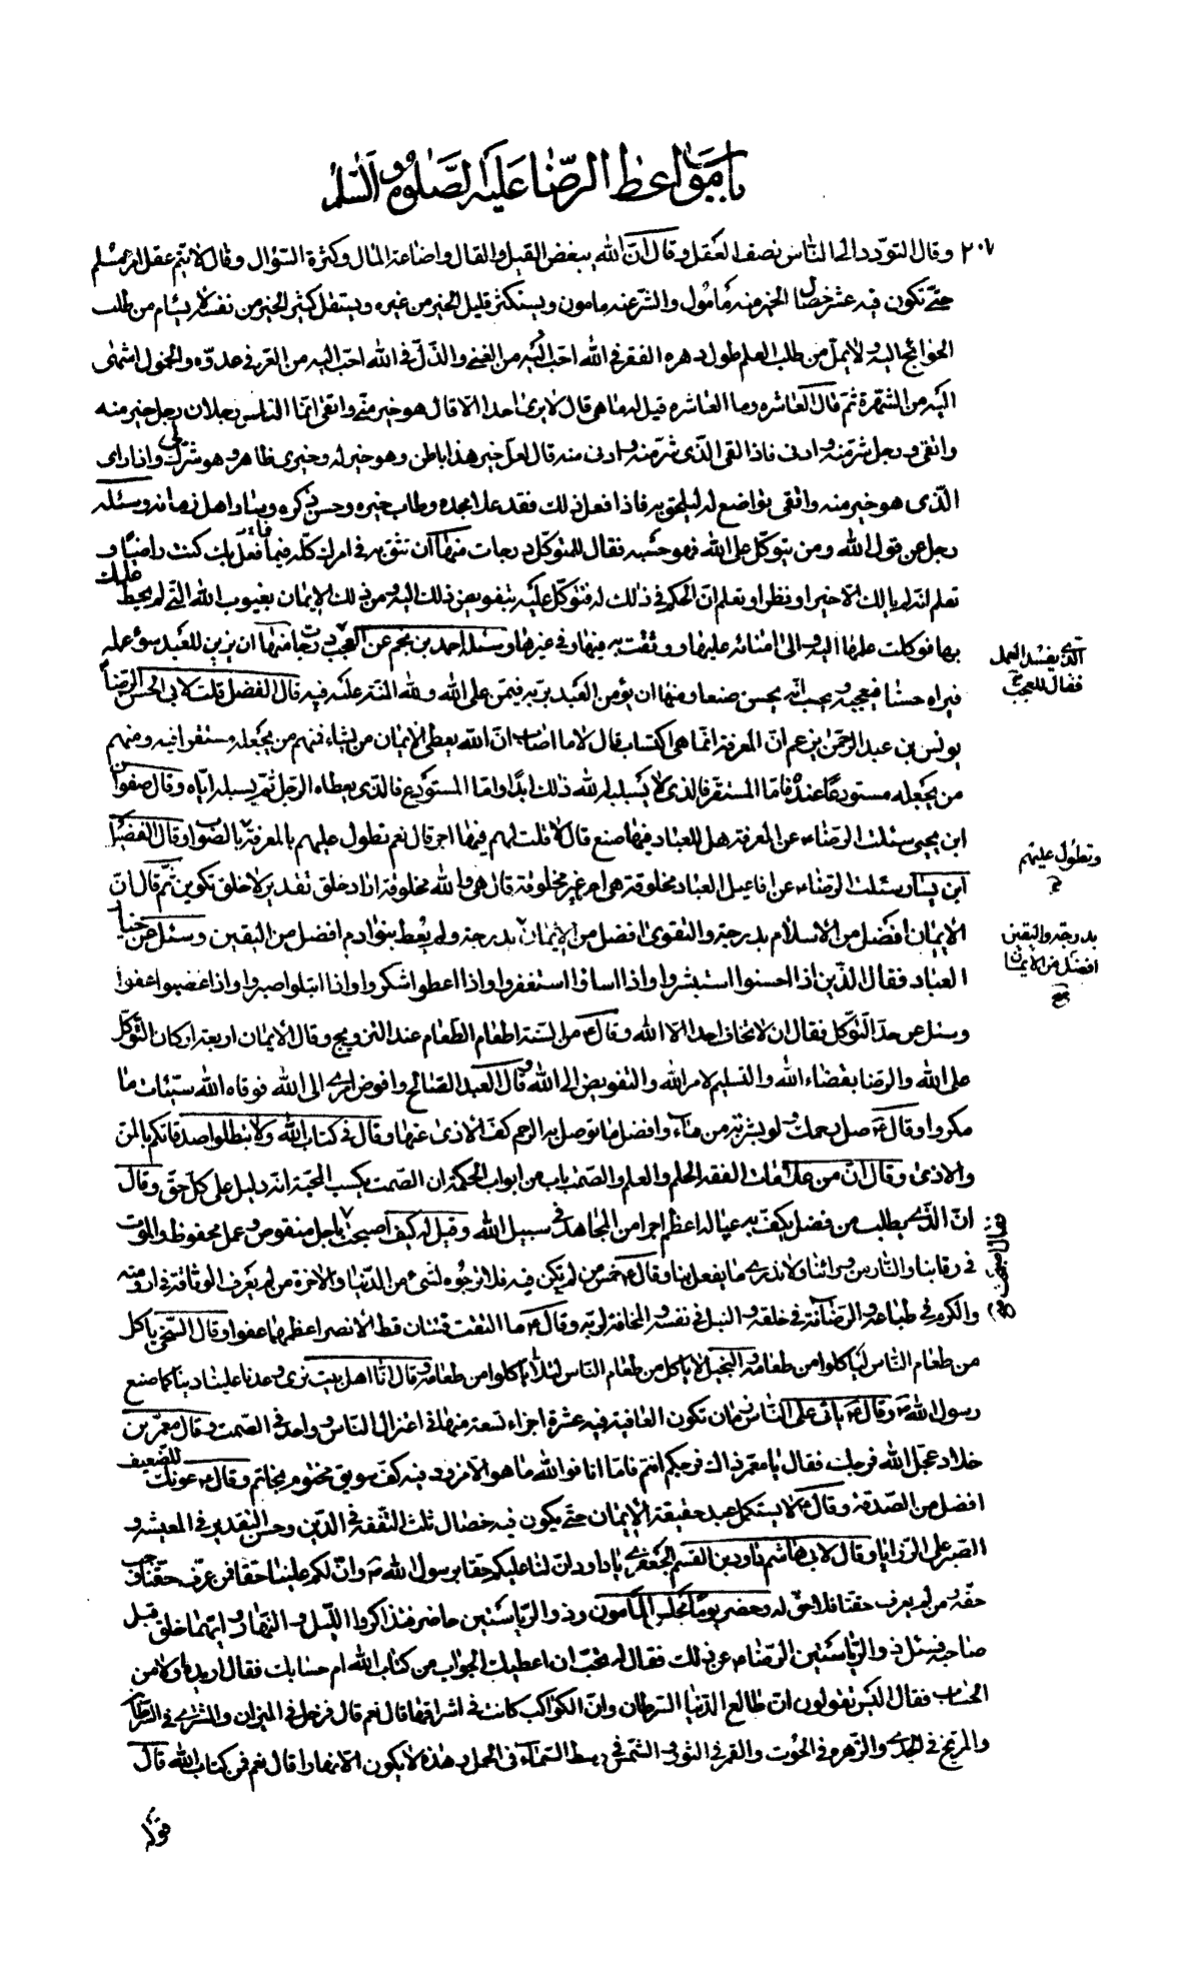 باب مواعظ الرضا عليه الصلوة والسلم
٢٠٧ وقال التودد الى الناس نصف العقل وقال ان الله يبغض القيل والقال واضاعة المال وكثرة السؤال وقال لا يتم عقل امرء مسلم
حتى تكون فيه عشر خصال الخير منه مأمول والشر عنه مامون ويستكثر قليل الخير من غيره ويستقل كثير الخير من نفسه لا يسئام من طلب
الحوائج اليه ولا يمل من طلب العلم طول دهره الفقر في الله احب اليه من الغنى والذل في الله احب اليه من العز في عدوه والخمول اشهى
اليه من الشهرة ثم قال العاشره وما العاشره قيل له ما هي قال لا يرى احدا الا قال هو خير مني واتقى انما الناس رجلان رجل خير منه
واتقى ورجل شر منه وادنى فاذا لقى الذى شر منه وادنى منه قال لعل خير هذا باطن وهو خير له وخيرى ظاهر وهو شر لى واذا راى
الذى هو خير منه واتقى تواضع له ليلحق به فاذا فعل ذلك فقد علا مجده وطاب خيره وحسن ذكره وساد اهل زمانه وسئله
رجل عن قول الله ومن يتوكل على الله فهو حسبه فقال للتوكل درجات منها ان تثق به في امرك كله فيما فعل بك كنت راضيا و
تعلم انه لم يالك الا خيرا ونظرا وتعلم ان الحكم في ذلك له فتوكل عليه بتفويض ذلك اليه ومن ذلك الايمان بغيوب الله التي لم يحط علمك
بها فوكلت علمها اليه والى امنائه عليها ووثقت به فيها وفي غيرها وسئله احمد بن نجم عن العجب درجات منها ان يزين للعبد سوء عمله
الذي يفسد العمل
فقال للعجب
فيراه حسنا فيعجبه ويحسب انه يحسن صنعا ومنها ان يؤمن العبد بربه فيمن على الله ولله المنة عليه فيه قال الفضل قلت لابى الحسن الرضا
يونس بن عبد الرحمن يزعم ان المعرفة انما هي اكتساب قال لا ما اصاب ان الله يعطى الايمان من يشاء فمنهم من يجعله مستقرا فيه ومنهم
من يجعله مستودعا عنده فاما المستقر فالذى لا يسلبه الله ذلك ابدا واما المستودع فالذى يعطاه الرجل ثم يسلبه اياه وقال صفوان
ابن يحيى سئلت الرضاء عن المعرفة هل للعباد فيها صنع قال لا قلت لهم فيها اجر قال نعم تطول عليهم بالمعرفة بالصواب وقال الفضيل
وتطول عليهم
ابن يسار سئلت الرضاء عن افاعيل العباد مخلوقة هى ام غير مخلوقة قال هى والله مخلوقة اراد خلق تقدير لا خلق تكوين ثم قال ان
الايمان افضل من الاسلام بدرجة والتقوى افضل من الايمان بدرجة ولم يعط بنو ادم افضل من اليقين وسئل عن خيار
بدرجة واليقين
افضل من الايمان
العباد فقال الذين اذا احسنوا استبشروا واذا اساؤا استغفروا واذا اعطوا شكروا واذا ابتلوا صبروا واذا غضبوا عفوا
وسئل عن حد التوكل فقال ان لا تخاف احدا الا الله وقال من السنة اطعام الطعام عند التزويج وقال الايمان اربعة اركان التوكل
على الله والرضا بقضاء الله والتسليم لامر الله والتفويض الى الله وقال العبد الصالح وافوض امرى الى الله فوقاه الله سيئات ما
مكروا وقال صل رحمك ولو بشربة من ماء وافضل ما توصل به الرحم كف الاذى عنها وقال في كتاب الله ولا تبطلوا صدقاتكم بالمن
والاذى وقال ان من علامات الفقه الحلم والعلم والصمت باب من ابواب الحكمة ان الصمت يكسب المحبة انه دليل على كل حق وقال
ان الذى يطلب من فضل يكف به عياله اعظم اجرا من المجاهد في سبيل الله وقيل له كيف اصبحت باجل منقوص وعمل محفوظ والموت
فقال اصبحت
في رقابنا والنار من ورائنا ولا ندرى ما يفعل بنا وقال خمس من لم تكن فيه فلا ترجوه لشئ من الدنيا والاخرة من لم يعرف الوثاقة في ارومته
والكرم في طباعه والرصانة في خلقه والنبل في نفسه والمخافة لربه وقال ما التقت فئتان قط الا نصر اعظمهما عفوا وقال السخى ياكل
من طعام الناس لياكلوا من طعامه والبخيل لا ياكل من طعام الناس لئلا ياكلوا من طعامه وقال انا اهل بيت نرى وعدنا علينا دينا كما صنع
رسول الله وقال ياتى على الناس زمان تكون العافية فيه عشرة اجزاء تسعة منها في اعتزال الناس وواحد في الصمت وقال معمر بن
خلاد عجل الله فرجك فقال يا معمر ذاك فرجكم انتم فاما انا فوالله ما هو الا مزود فيه كف سويق مختوم بخاتم وقال عونك للضعيف
افضل من الصدقة وقال لا يستكمل عبد حقيقة الايمان حتى يكون فيه خصال ثلث التفقه في الدين وحسن التقدير في المعيشة و
الصبر على الرزايا وقال لابى هاشم داود بن القسم الجعفرى يا داود ان لنا عليكم حقا برسول الله وان لكم علينا حقا فمن عرف حقنا وجب
حقه ومن لم يعرف حقنا فلا حق له وحضر يوما مجلس المأمون وذو الرياستين حاضر فتذاكروا الليل والنهار وايهما خلق قبل
صاحبه فسئل ذو الرياستين الرضاء عن ذلك فقال له تحب ان اعطيك الجواب من كتاب الله ام حسابك فقال اريده اولا من
الحساب فقال اليس تقولون ان طالع الدنيا السرطان وان الكواكب كانت في اشرافها قال نعم قال فزحل في الميزان والمشترى في السرطان
والمريخ في الجدى والزهره في الحوت والقمر في الثور والشمس في وسط السماء في الحمل وهذه لا يكون الا نهارا قال نعم فمن كتاب الله قال
قوله